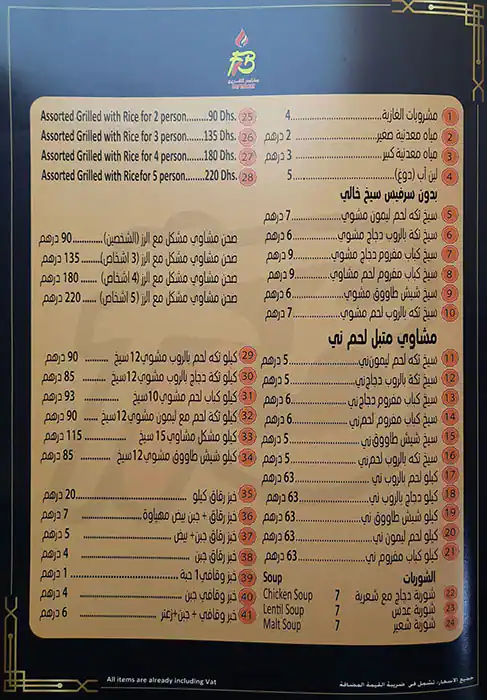 FB
1 مشروبات الغازية 4
2 مياه معدنية صغير 2 درهم
3 مياه معدنية كبير 3 درهم
4 لبن آب (دوغ) 5
بدون سرفيس سيخ خالي
5 سيخ تكه لحم ليمون مشوي 7 درهم
6 سيخ تكه بالروب دجاج مشوي 6 درهم
7 سيخ كباب مفروم دجاج مشوي 9 درهم
8 سيخ كباب مفروم لحم مشاوي 9 درهم
9 سيخ شيش طاووق مشوي 6 درهم
10 سيخ تكه بالروب لحم مشوي 7 درهم
مشاوي متبل لحم ني
11 سيخ تكه لحم ليمون ني 5 درهم
12 سيخ تكة بالروب دجاج ني 5 درهم
13 سيخ كباب مفروم دجاج ني 6 درهم
14 سيخ كباب مفروم لحم ني 6 درهم
15 سيخ شيش طاووق ني 5 درهم
16 سيخ تكه بالروب لحم ني 5 درهم
17 كيلو لحم بالروب ني 63 درهم
18 كيلو دجاج بالروب ني 63 درهم
19 كيلو شيش طاووق ني 63 درهم
20 كيلو لحم ليمون ني 63 درهم
21 كيلو كباب مفروم ني 63 درهم
Soup الشوربات
22 شوربة دجاج مع شعرية 7 Chicken Soup
23 شوربة عدس 7 Lentil Soup
24 شوربة شعير 7 Malt Soup
Assorted Grilled with Rice for 2 person.......90 Dhs. 25
Assorted Grilled with Rice for 3 person.....135 Dhs. 26
Assorted Grilled with Rice for 4 person.....180 Dhs. 27
Assorted Grilled with Rice for 5 person......220 Dhs. 28
صحن مشاوي مشكل مع الرز (الشخصين) 90 درهم
صحن مشاوي مشكل مع الرز (3 اشخاص) 135 درهم
صحن مشاوي مشكل مع الرز (4 اشخاص) 180 درهم
صحن مشاوي مشكل مع الرز (5 اشخاص) 220 درهم
29 كيلو تكه لحم بالروب مشوي 12 سيخ 90 درهم
30 كيلو تكة دجاج بالروب مشوي 12 سيخ 85 درهم
31 كيلو كباب لحم مشوي 10 سيخ 93 درهم
32 كيلو تكة لحم مع ليمون مشوي 12 سيخ 90 درهم
33 كيلو مشكل مشاوي 15 سيخ 115 درهم
34 كيلو شيش طاووق مشوي 12 سيخ 85 درهم
35 خبز رقاق كيلو 20 درهم
36 خبز رقاق + جبن بيض مهياوة 7 درهم
37 خبز رقاق جبن+ بيض 5 درهم
38 خبز رقاق جبن 4 درهم
39 خبز وقافي 1 حبة 1 درهم
40 خبز وقافي جبن 4 درهم
41 خبز وقافي + جبن+زعتر 6 درهم
All items are already including Vat
جميع الاسعار، تشمل في ضريبة القيمة المضافة